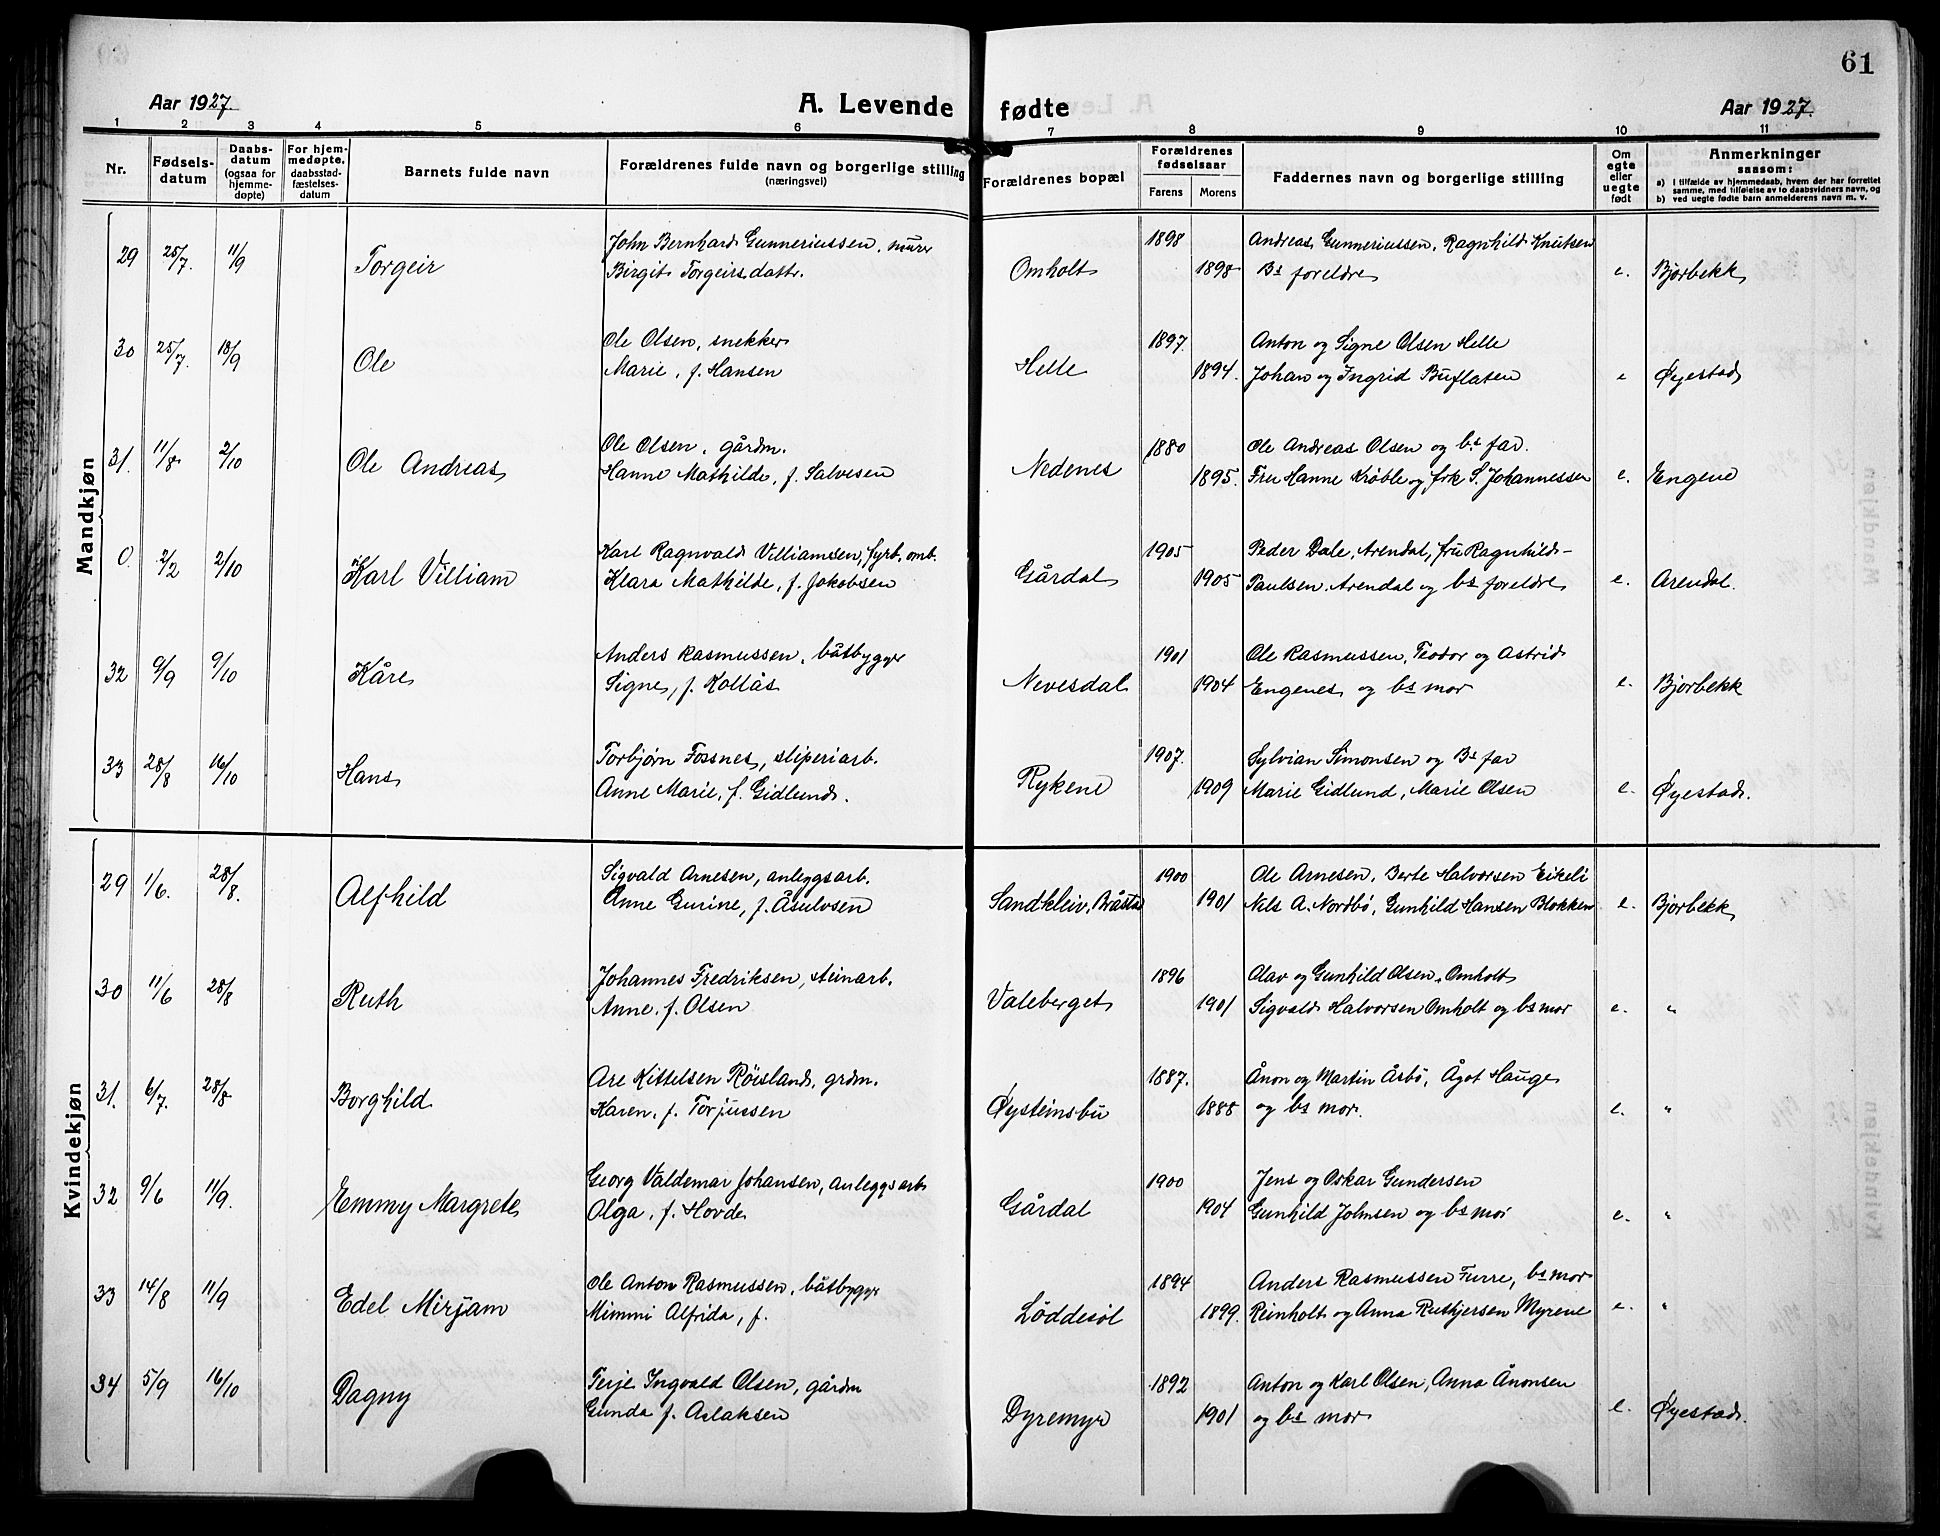 61
Aar 1927.
A. Levende fødte
Aar 1927.
1 2 3 4 5 6 7 8 9 10 11
Nr.
Fødsels-
datum
Daabs-
datum
(ogsaa for
hjemme-
døpte)
For hjem-
medøpte,
daabsstad-
fæstelses-
datum
Barnets fulde navn
Forældrenes fulde navn og borgerlige stilling
(næringsvei)
Forældrenes bopæl
Forældrenes
fødselsaar
Farens Morens
Faddernes navn og borgerlige stilling
Om
egte
eller
uegte
født
Anmerkninger
saasom:
a) I tilfælde av hjemmedaab, hvem der har forrettet
samme, med tilføielse av to daabsvidners navn, og
b) ved uegte fødte barn anmelderens navn m. v.
Mandkjøn
John Bernhard Gunneriussen, murer 1898 Andreas Gunneriussen, Ragnhild Knutsen
29 25/7. 11/9 Torgeir Birgit Torgeirsdattr. Omholt 1898 Bs foreldre e. Bjorbekk
Ole Olsen, snekker 1897. Anton og Signe Olsen Helle
30 25/7. 18/9 Ole Marie, f. Hansen Helle 1894. Johan og Ingrid Buflaten e Øyestad
Ole Olsen, gårdm. 1880 Ole Andreas Olsen og bs far.
31. 11/8. 2/10 Ole Andreas Hanne Mathilde, f. Salvesen Nedenes 1895. Fru Hanne Krøble og frk S. Johannessen e. Engene
Karl Ragnvald Villiamsen, fyrb. omb. 1905 Peder Dale, Arendal, fru Ragnhild-
0. 2/2 2/10 Karl Villiam Klara Mathilde, f. Jakobsen Gårdal 1905 Paulsen, Arendal og bs foreldre e. Arendal.
Anders Rasmussen, båtbygger 1901 Ole Rasmussen, Teodor og Astrid
32 9/9 9/10 Kåre Signe, f. Kollås Nevesdal 1904 Engenes og bs mor e. Bjorbekk
Torbjørn Fossnes, sliperiarb. 1907. Sylvian Simonsen og Bs far
33 28/8 16/10 Hans Anne Marie, f. Gidlund. Rykene 1909 Marie Gidlund, Marie Olsen e. Øyestad.
Kvindekjøn
Sigvald Arnesen, anleggsarb. 1900 Ole Arnesen, Berte Halvorsen Eikeli
29 1/6. 28/8. Alfhild Anne Gurine, f. Åsulvsen Sandkleiv, Bråstad 1901 Nels A. Nordbø, Gunhild Hansen Blokken e. Bjorbekk
Johannes Fredriksen, steinarb. 1896 Olav og Gunhild Olsen, Omholt
30 11/6 28/8 Ruth Anne, f. Olsen Valeberget 1901 Sigvald Halvorsen Omholt og bs mor e. "
Are Kittelsen Røisland, grdm. 1887. Ånon og Martin Åsbø, Ågot Hauge
31. 6/7. 28/8 Borghild Karen, f. Torjussen Øysteinsbu 1888 og bs mor. e. "
Georg Valdemar Johansen, anleggsarb 1900 Jens og Oskar Gundersen
32 9/6 11/9. Emmy Margrete Olga, f. Hovde Gårdal 1904 Gunhild Johnsen og bs mor e. "
Ole Anton Rasmussen, båtbygger 1894 Anders Rasmussen Furre, bs mor
33 14/8 11/9 Edel Mirjam Mimmi Alfrida, f. Løddesøl 1899. Reinholt og Anna Rutkjersen Myrene e. "
Terje Ingvald Olsen, gårdm 1892 Anton og Karl Olsen, Anna Ånonsen
34 5/9 16/10 Dagny Gunda f. Aslaksen Dyremyr 1901 og bs mor e. Øyestad.